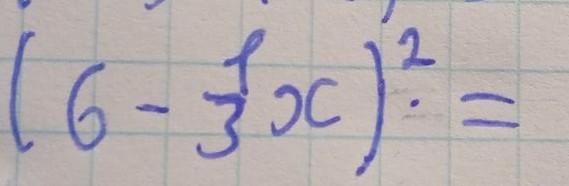 (6 - 1/3 x)². =